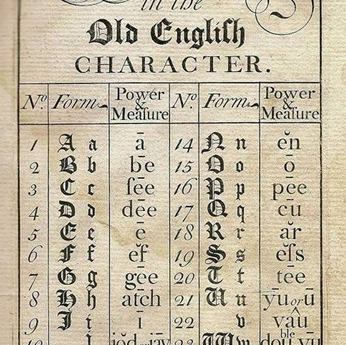 in the
Old Engliſh
CHARACTER.
No. Form Power & Meaſure No. Form Power & Meaſure
1 A a ā 14 N n ĕn
2 B b bē 15 O o ō
3 C c ſēe 16 P p pēe
4 D d dēe 17 Q q cū
5 E e ē 18 R r ăr
6 F f ĕf 19 S s eſs
7 G g gēe 20 T t tēe
8 H h atch 21 U u yū or ū
9 I i ī 22 v vâu
10 j jŏd-jāy 23 W w double yu